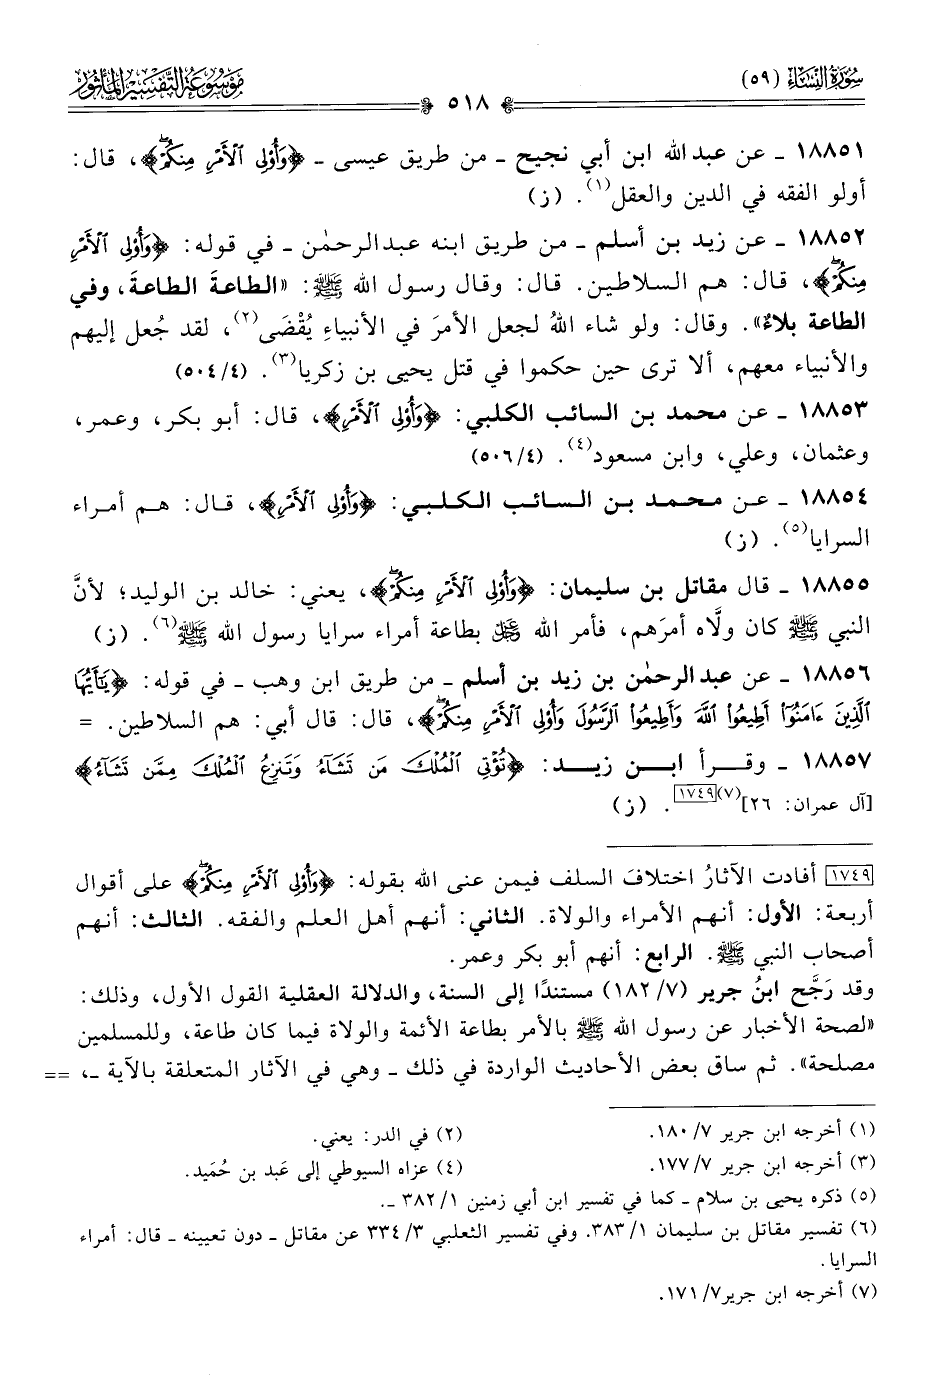 سورة النساء (٥٩)
موسوعة التفسير المأثور
٥١٨
١٨٨٥١ ـ عن عبد الله ابن أبي نجيح ـ من طريق عيسى ـ ﴿وَأُوْلِى ٱلْأَمْرِ مِنكُمْ﴾، قال:
أولو الفقه في الدين والعقل(١). (ز)
١٨٨٥٢ ـ عن زيد بن أسلم ـ من طريق ابنه عبدالرحمٰن ـ في قوله: ﴿وَأُوْلِى ٱلْأَمْرِ
مِنكُمْ﴾، قال: هم السلاطين. قال: وقال رسول الله ﷺ: «الطاعةَ الطاعةَ، وفي
الطاعة بلاءٌ». وقال: ولو شاء اللهُ لجعل الأمرَ في الأنبياءِ يُقْضَى(٢)، لقد جُعل إليهم
والأنبياء معهم، ألا ترى حين حكموا في قتل يحيى بن زكريا(٣). (٥٠٤/٤)
١٨٨٥٣ ـ عن محمد بن السائب الكلبي: ﴿وَأُوْلِى ٱلْأَمْرِ﴾، قال: أبو بكر، وعمر،
وعثمان، وعلي، وابن مسعود(٤). (٥٠٦/٤)
١٨٨٥٤ ـ عن محمد بن السائب الكلبي: ﴿وَأُوْلِى ٱلْأَمْرِ﴾، قال: هم أمراء
السرايا(٥). (ز)
١٨٨٥٥ ـ قال مقاتل بن سليمان: ﴿وَأُوْلِى ٱلْأَمْرِ مِنكُمْ﴾، يعني: خالد بن الوليد؛ لأنَّ
النبي ﷺ كان ولَّاه أمرَهم، فأمر الله ﷻ بطاعة أمراء سرايا رسول الله ﷺ(٦). (ز)
١٨٨٥٦ ـ عن عبدالرحمٰن بن زيد بن أسلم ـ من طريق ابن وهب ـ في قوله: ﴿يَٰٓأَيُّهَا
ٱلَّذِينَ ءَامَنُوٓاْ أَطِيعُواْ ٱللَّهَ وَأَطِيعُواْ ٱلرَّسُولَ وَأُوْلِى ٱلْأَمْرِ مِنكُمْ﴾، قال: قال أبي: هم السلاطين. =
١٨٨٥٧ ـ وقرأ ابن زيد: ﴿تُؤْتِى ٱلْمُلْكَ مَن تَشَآءُ وَتَنزِعُ ٱلْمُلْكَ مِمَّن تَشَآءُ﴾
[آل عمران: ٢٦](٧)[١٧٤٩]. (ز)
[١٧٤٩] أفادت الآثارُ اختلافَ السلف فيمن عنى الله بقوله: ﴿وَأُوْلِى ٱلْأَمْرِ مِنكُمْ﴾ على أقوال
أربعة: الأول: أنهم الأمراء والولاة. الثاني: أنهم أهل العلم والفقه. الثالث: أنهم
أصحاب النبي ﷺ. الرابع: أنهم أبو بكر وعمر.
وقد رَجَّح ابنُ جرير (١٨٢/٧) مستندًا إلى السنة، والدلالة العقلية القول الأول، وذلك:
«لصحة الأخبار عن رسول الله ﷺ بالأمر بطاعة الأئمة والولاة فيما كان طاعة، وللمسلمين
مصلحة». ثم ساق بعض الأحاديث الواردة في ذلك ـ وهي في الآثار المتعلقة بالآية ـ، ==
(١) أخرجه ابن جرير ١٨٠/٧.
(٢) في الدر: يعني.
(٣) أخرجه ابن جرير ١٧٧/٧.
(٤) عزاه السيوطي إلى عَبد بن حُمَيد.
(٥) ذكره يحيى بن سلام ـ كما في تفسير ابن أبي زمنين ٣٨٢/١ ـ.
(٦) تفسير مقاتل بن سليمان ٣٨٣/١. وفي تفسير الثعلبي ٣٣٤/٣ عن مقاتل ـ دون تعيينه ـ قال: أمراء
السرايا.
(٧) أخرجه ابن جرير٧/ ١٧١.